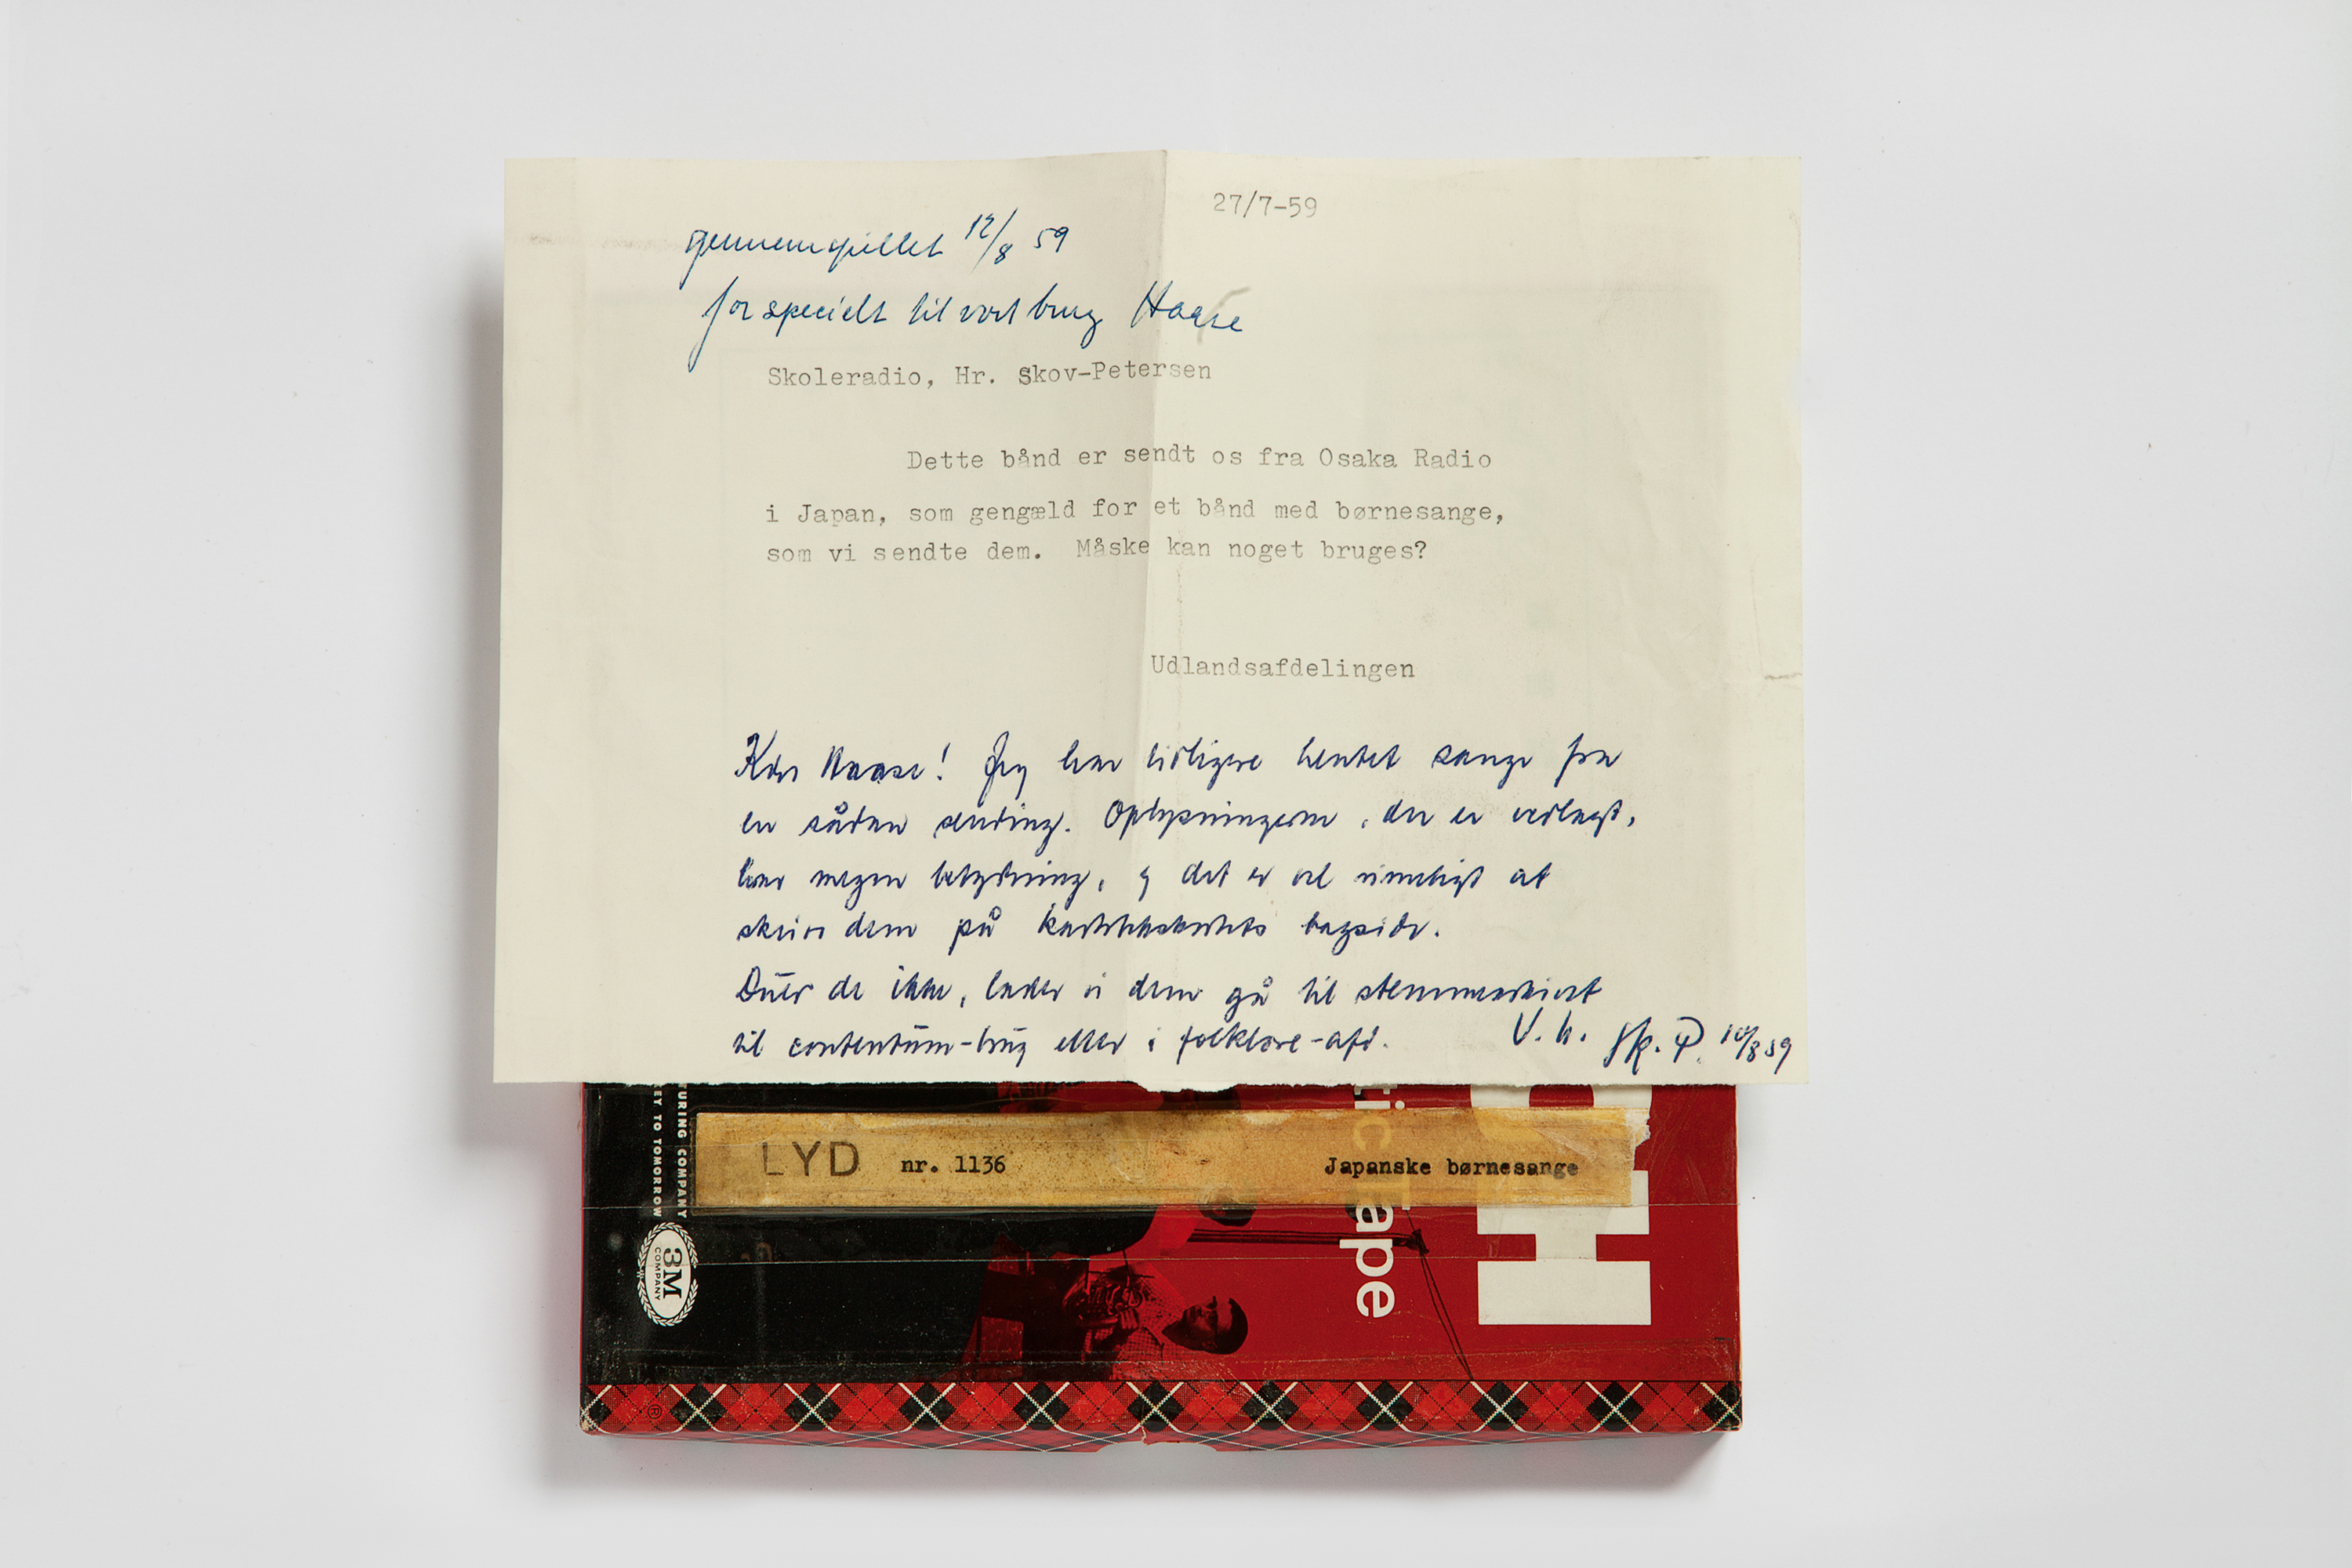 27/7-59
gennemspillet 12/8 59
for specielt til vort brug Haase
Skoleradio, Hr. Skov-Petersen
Dette bånd er sendt os fra Osaka Radio
i Japan, som gengæld for et bånd med børnesange,
som vi sendte dem. Måske kan noget bruges?
Udlandsafdelingen
Kære Haase! Jeg har tidligere hentet sange fra
en sådan sending. Oplysningerne, der er vedlagt,
har megen betydning, og det er vel rimeligt at
skrive dem på kartotekskortets bagside.
Duer de ikke, lader vi dem gå til stemmearkivet
til contentum-brug eller i folklore-afd.
V. h. Sk. P. 10/8 59
TURING COMPANY
EY TO TOMORROW
3M
COMPANY
LYD nr. 1136 Japanske børnesange
tic Tape
H
®